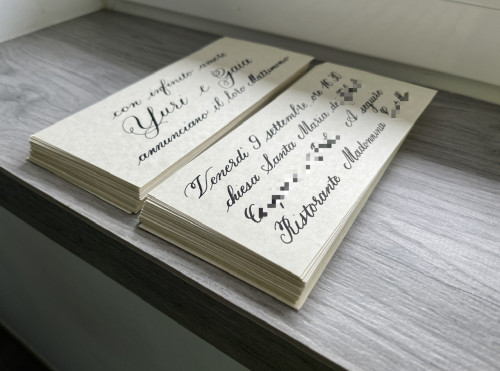 con infinito amore
Yuri e Gaia
annunciano il loro Matrimonio
Venerdì 9 settembre, ore 16,30
chiesa Santa Maria de
A seguire
Ristorante Madonnina